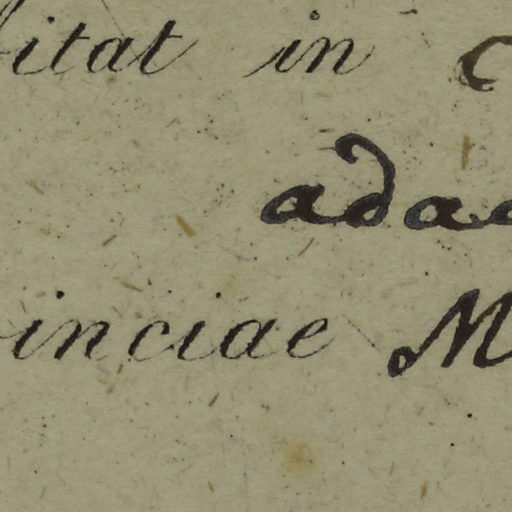 bitat in C
adac
vinciae M